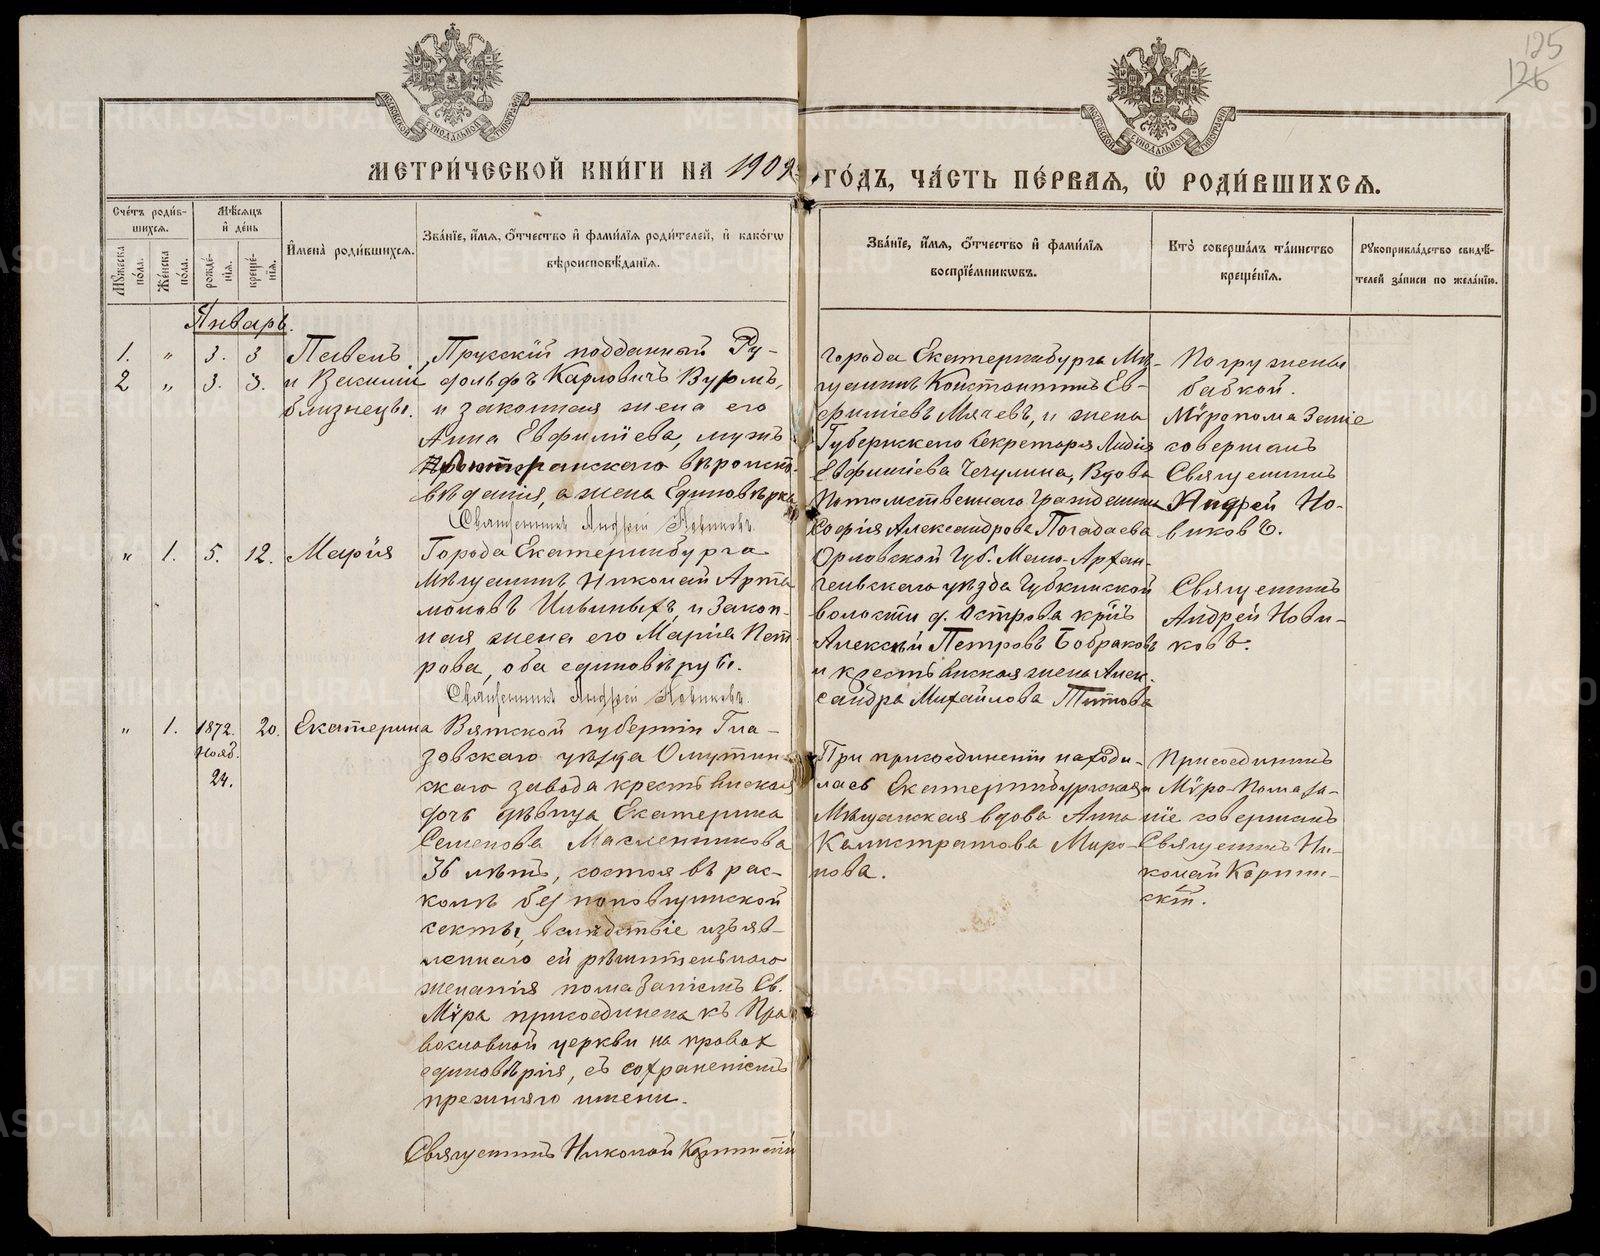 125
126
МОСКОВСКОЙ СѴНОДАЛЬНОЙ ТИПОГРАФІИ
МОСКОВСКОЙ СѴНОДАЛЬНОЙ ТИПОГРАФІИ
МЕТРИ́ЧЕСКОЙ КНИ́ГИ НА 1909
ГО́ДЪ, ЧА́СТЬ ПЕ́РВАЯ, Ѡ҆ РОДИ́ВШИХСЯ.
Сче́тъ роди́вшихся.
Мꙋ́жеска по́ла.
Же́нска по́ла.
Мѣ́сяцъ и҆ де́нь
рожде́нїя.
креще́нїя.
И҆мена̀ роди́вшихся.
Зва́нїе, и҆́мя, ѻ҆́тчество и҆ фами́лїя роди́телей, и҆ како́гѡ
вѣроисповѣ́данїя.
Зва́нїе, и҆́мя, ѻ҆́тчество и҆ фами́лїя
воспрїе́мникѡвъ.
Кто̀ соверша́лъ та́инство
креще́нїя.
Рꙋкоприкла́дство свидѣ́-
телей за́писи по жела́нїю.
Январь.
1. " 3. 3 Павелъ
2 " 3. 3. и Василій
близнецы.
Прусскій подданный Ру-
дольфъ Карловичъ Вурмъ,
и законная жена его
Анна Евфиміева, мужъ
Лютеранскаго вѣроиспо-
вѣданія, а жена Единовѣрка
Священникъ Андрей Новиковъ.
города Екатеринбурга Мѣ-
щанинъ Константинъ Ев-
фиміевъ Мячевъ, и жена
Губернскаго Секретаря Лидія
Евфиміева Чечулина, Вдова
Потомственнаго Гражданина
Софія Александрова Погадаева
Погружены
бабкой.
Мѵропомазаніе
совершалъ
Священникъ
Андрей Но-
виковъ.
" 1. 5. 12. Марія
Города Екатеринбурга
Мѣщанинъ Николай Арта-
моновъ Ильиныхъ, и закон-
ная жена его Марія Пет-
рова, оба единовѣрцы.
Священникъ Андрей Новиковъ.
Орловской Губ. Мало-Архан-
гельскаго уѣзда Губкинской
волости д. Острова кр\іъ
Алексѣй Петровъ Бобраковъ
и крестьянская жена Алек-
сандра Михайлова Титова
Священникъ
Андрей Нови-
ковъ.
" 1. 1872. 20. Екатерина
Нояб.
24.
Вятской губерніи Гла-
зовскаго уѣзда Омутин-
скаго завода крестьянская
дочь дѣвица Екатерина
Семенова Масленникова
36 лѣтъ, состоя въ рас-
колѣ безпоповщинской
секты, вслѣдствіе изъяв-
леннаго ей рѣшительнаго
желанія помазаніемъ Св.
Мѵра присоединена къ Пра
вославной церкви на правах
единовѣрія, съ сохраненіемъ
прежняго имени.
Священникъ Николай Корпинскій
При присоединеніи находи-
лась Екатеринбургская
Мѣщанская вдова Анна
Калистратова Миро-
нова.
Присоединилъ
и Мѵро-Помаза-
ніе совершалъ
Священникъ Ни-
колай Корпин-
скій.
METRIKI.GASO-URAL.RU